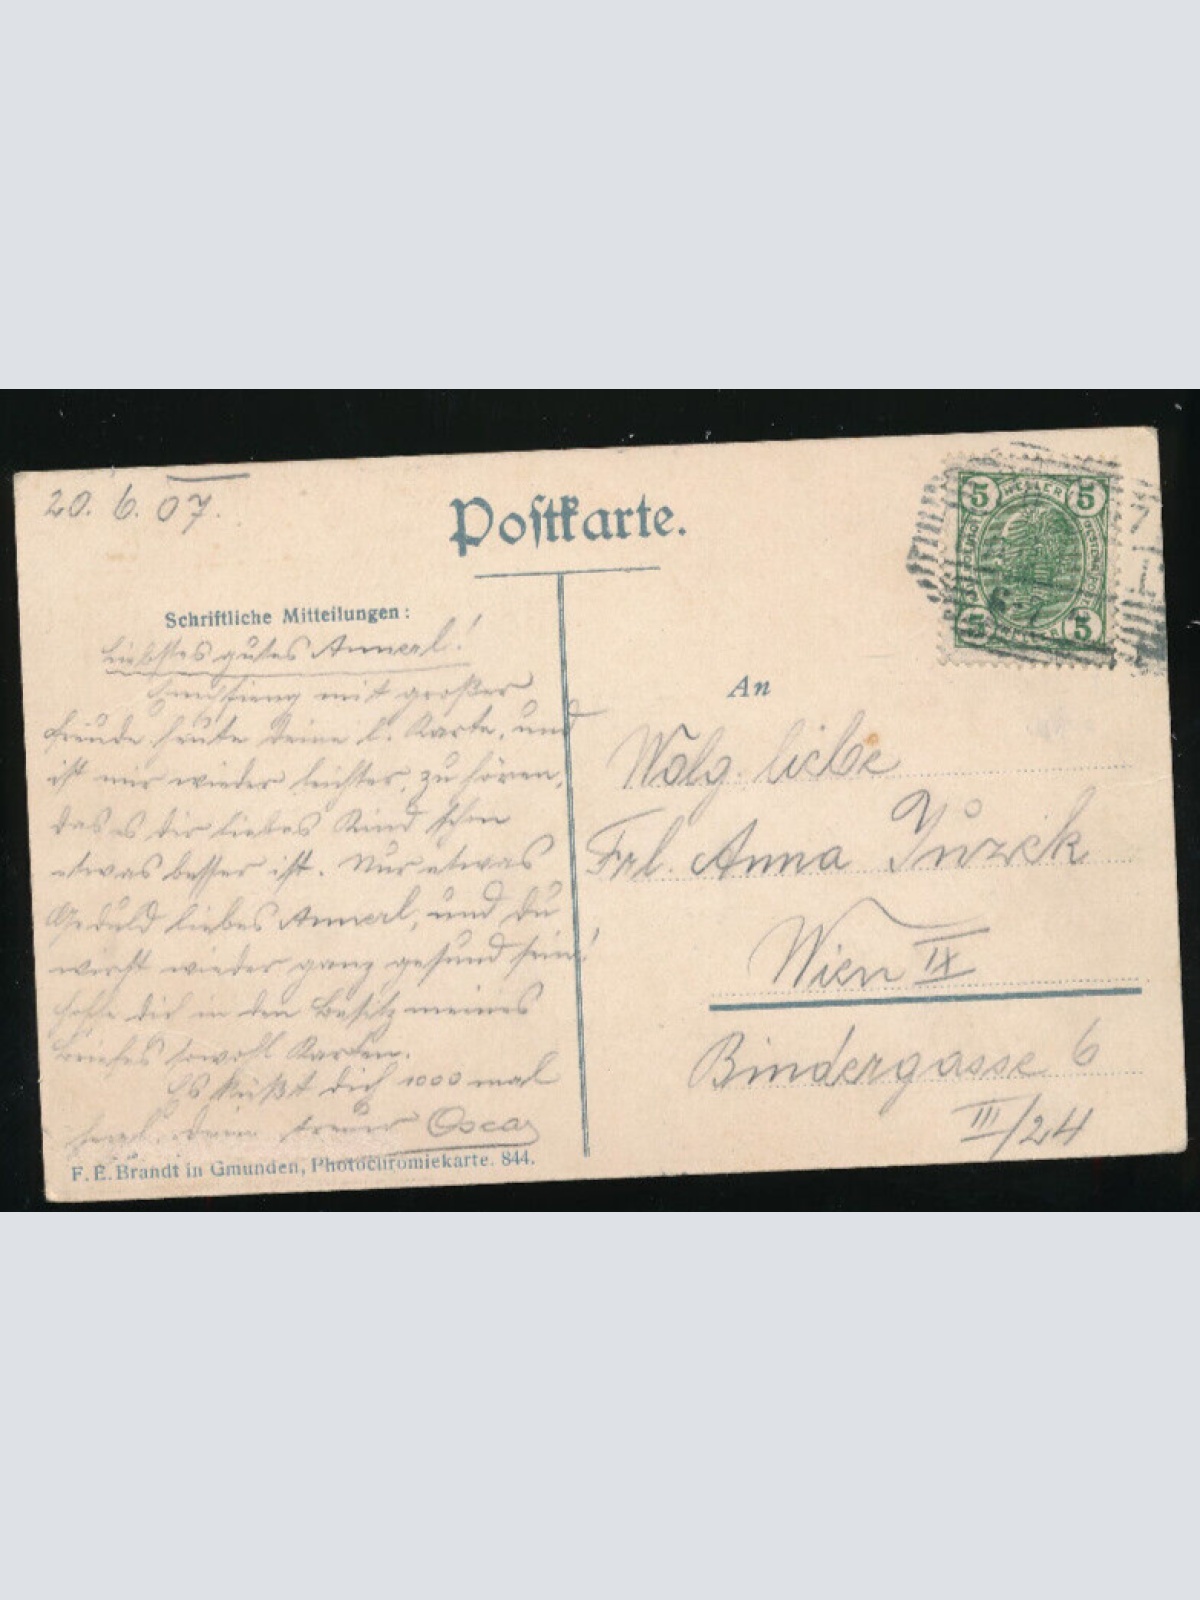 20. 6. 07.
Postkarte.
Schriftliche Mitteilungen:
Liebstes gutes Annerl!
Empfieng mit großer
Freude heute deine l. Karte, und
ist mir wieder leichter, zu hören,
das es dir liebes Kind schon
etwas besser ist. Nur etwas
Geduld liebes Annerl, und du
wirst wieder ganz gesund sein!
Hoffe dich in den Besitz meines
Briefes sowohl Karten.
Es küßt dich 1000 mal
dein treuer Oscar
F. E. Brandt in Gmunden, Photochromiekarte. 844.
5 HELLER 5
5 5
An
Wolg. liebe
Frl. Anna
Wien IX
Bindergasse 6
III/24